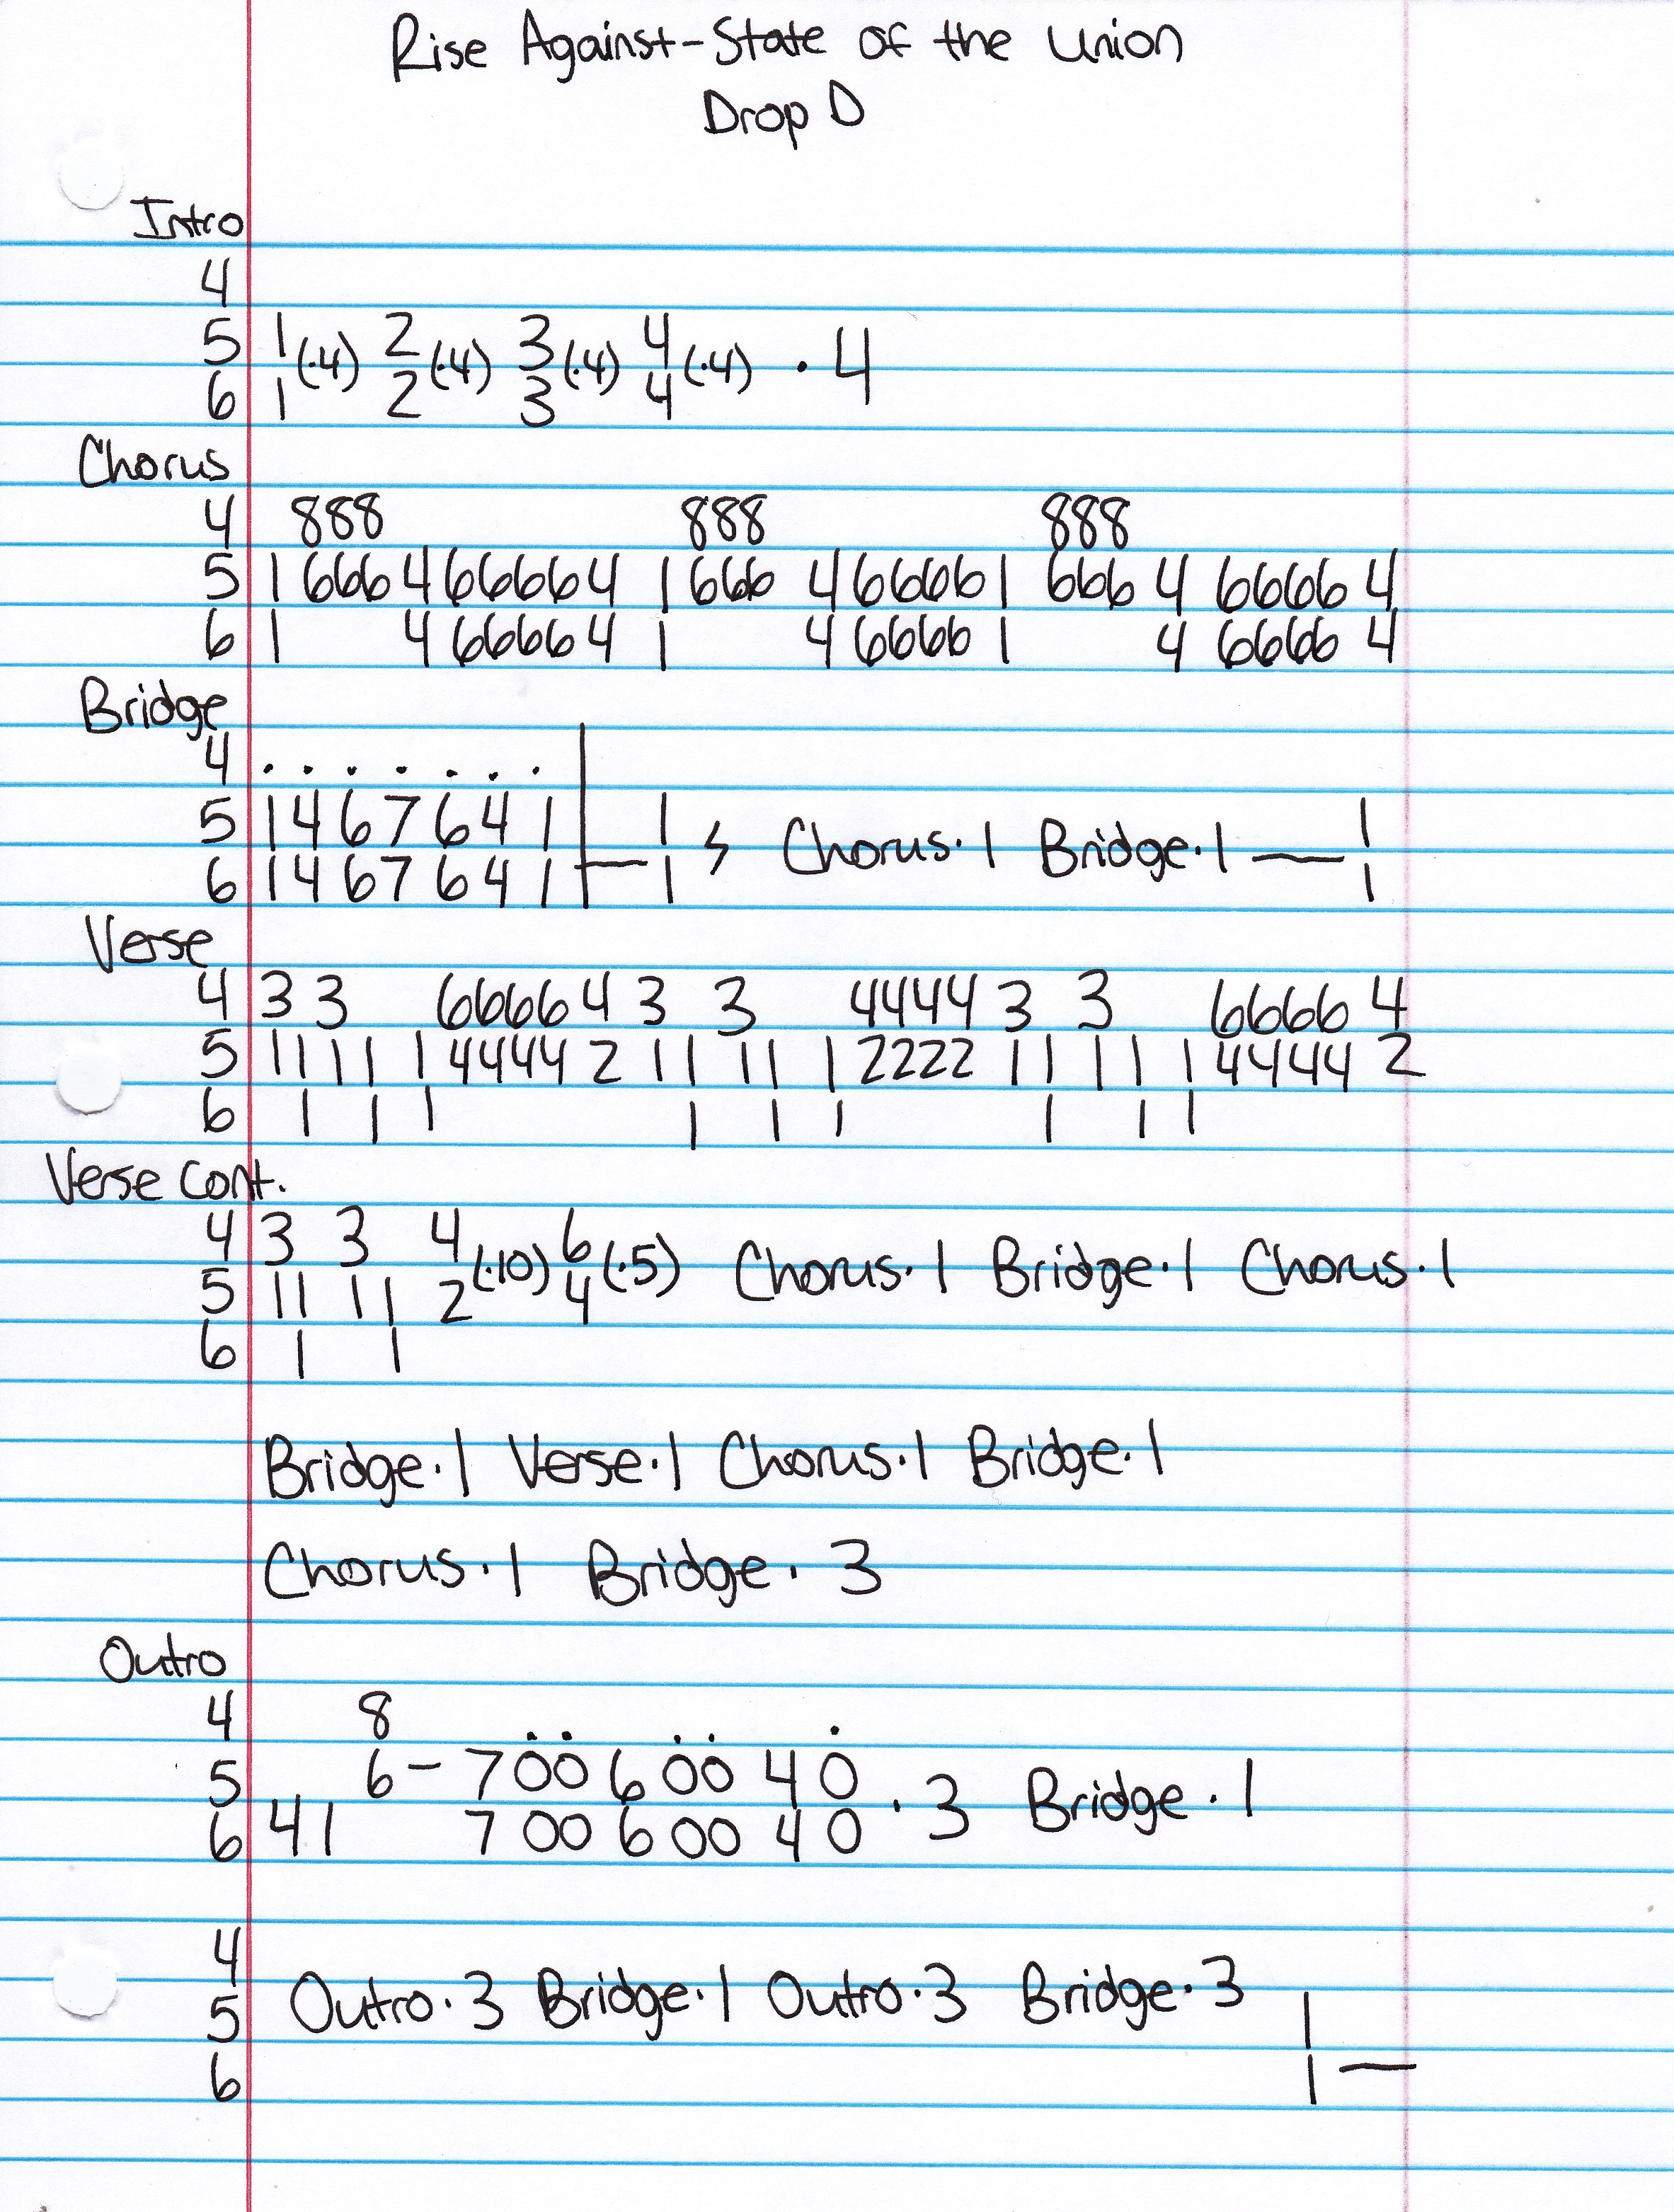 Rise Against-State of the Union
Drop D
Intro
4
5 1(·4) 2(·4) 3(·4) 4(·4) · 4
6 1 2 3 4
Chorus
4 888 888 888
5 1 666 4 66666 4 1 666 4 6666 1 666 4 6666 4
6 1 4 6666 4 1 4 6666 1 4 6666 4
Bridge
4 . . . . . . .
5 1 4 6 7 6 4 1 | 1 Chorus·1 Bridge·1 — 1
6 1 4 6 7 6 4 1 | — 1 1
Verse
4 3 3 6666 4 3 3 4444 3 3 6666 4
5 1 1 1 1 1 4444 2 1 1 1 1 1 2222 1 1 1 1 1 4444 2
6 1 1 1 1 1 1 1 1 1
Verse Cont.
4 3 3 4(·10) 6(·5) Chorus·1 Bridge·1 Chorus·1
5 1 1 1 1 2 4
6 1 1
Bridge·1 Verse·1 Chorus·1 Bridge·1
Chorus·1 Bridge·3
Outro
4 8 . . . . .
5 6 – 7 0 0 6 0 0 4 0 · 3 Bridge·1
6 4 1 7 0 0 6 0 0 4 0
4
5 Outro·3 Bridge·1 Outro·3 Bridge·3 1
6 1 —